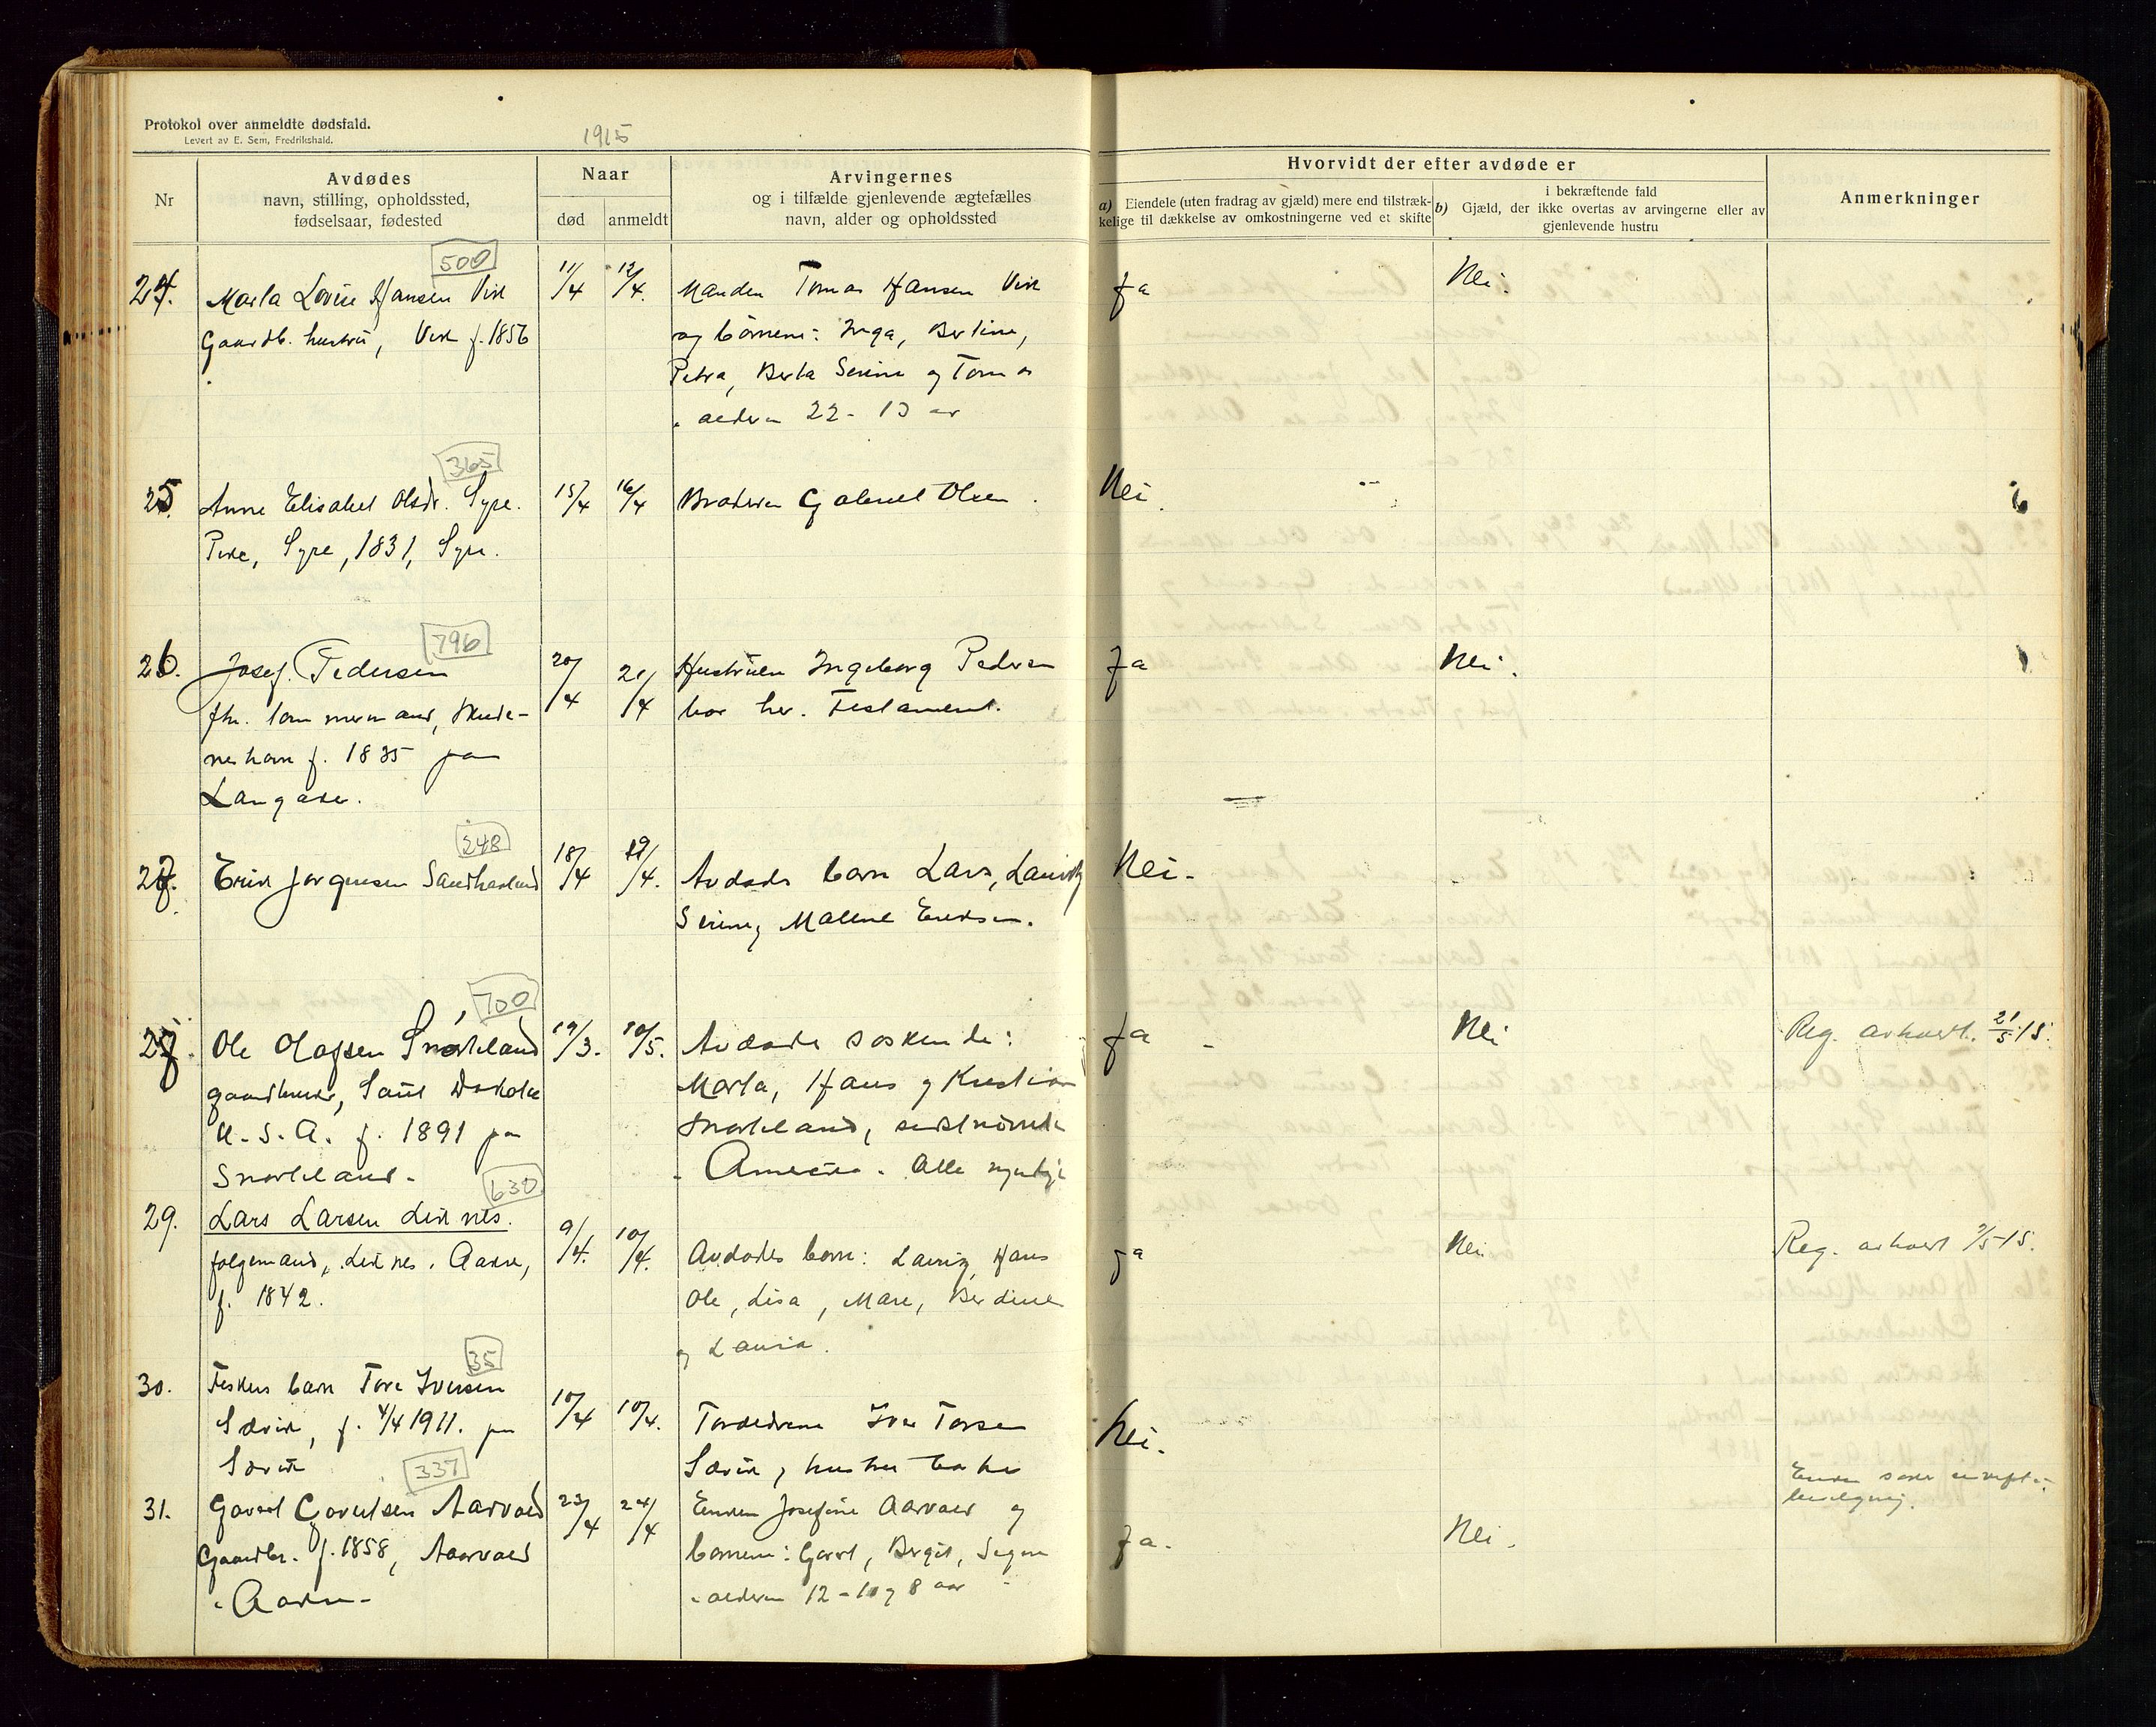 Protokol over anmeldte dødsfald.
Levert av E. Sem, Fredrikshald.
1915
Nr
Avdødes
navn, stilling, opholdssted,
fødselsaar, fødested
Naar
død
anmeldt
Arvingernes
og i tilfælde gjenlevende ægtefælles
navn, alder og opholdssted
Hvorvidt der efter avdøde er
a) Eiendele (uten fradrag av gjæld) mere end tilstræk-
kelige til dækkelse av omkostningerne ved et skifte
i bekræftende fald
b) Gjæld, der ikke overtas av arvingerne eller av
gjenlevende hustru
Anmerkninger
500
24.
Marta Lovise Hansen Vik
Gaardb. hustru, Vik f. 1856
11/4
12/4.
Manden Tomas Hansen Vik
og børnene: Inga, Bertine,
Petra, Berta Serine og Tomas
i alderen 22 - 13 aar
Ja
Nei.
365
25.
Anne Elisabet Olsdr. Syre.
Pike, Syre, 1831, Syre.
15/4
16/4
Broderen Gabriel Olsen.
Nei.
796
26.
Josef Pedersen
fhv. tømmermand, Skude-
neshavn f. 1835 paa
Langaker.
20/4
21/4
Hustruen Ingeborg Pedersen
bor her. Testament.
Ja
Nei.
248
27.
Erik Jørgensen Sandhaaland
18/4
19/4.
Avdødes børn Lars, Lauritz
Serine, Malene Eriksen.
Nei.
700
Ole Olafsen Snørteland
gaardbruker, Saut Dakota
U.S.A. f. 1891 paa
Snørteland.
19/3.
10/5.
Avdødes søskende:
Marta, Hans og Kristian
Snørteland, sidstnævnte
i Amerika. Alle myndige
Ja
Nei
Reg. avholdt. 21/5 15.
630
29.
Lars Larsen Liknes.
følgemand, Liknes, Aakre,
f. 1842.
9/4.
10/4.
Avdødes børn: Lauritz, Hans
Ole, Lisa, Mare, Berdine
og Laura.
ja
Nei
Reg. avholdt 7/5 15.
35
30.
Fiskers barn Tore Iversen
Sævik, f. 4/4 1911. paa
Sævik
10/4
10/4.
Forældrene Iver Torsen
Sævik, hustru
Nei.
337
31.
Govert Govertsen Aarvold
Gaardbr. f. 1858, Aarvold
i Aakre.
23/4
24/4
Enken Josefine Aarvold og
børnene: Govert, Birgit, Signe
i alderen 12 - 10 og 8 aar
Ja.
Nei.
Enken søker
bevilgning.